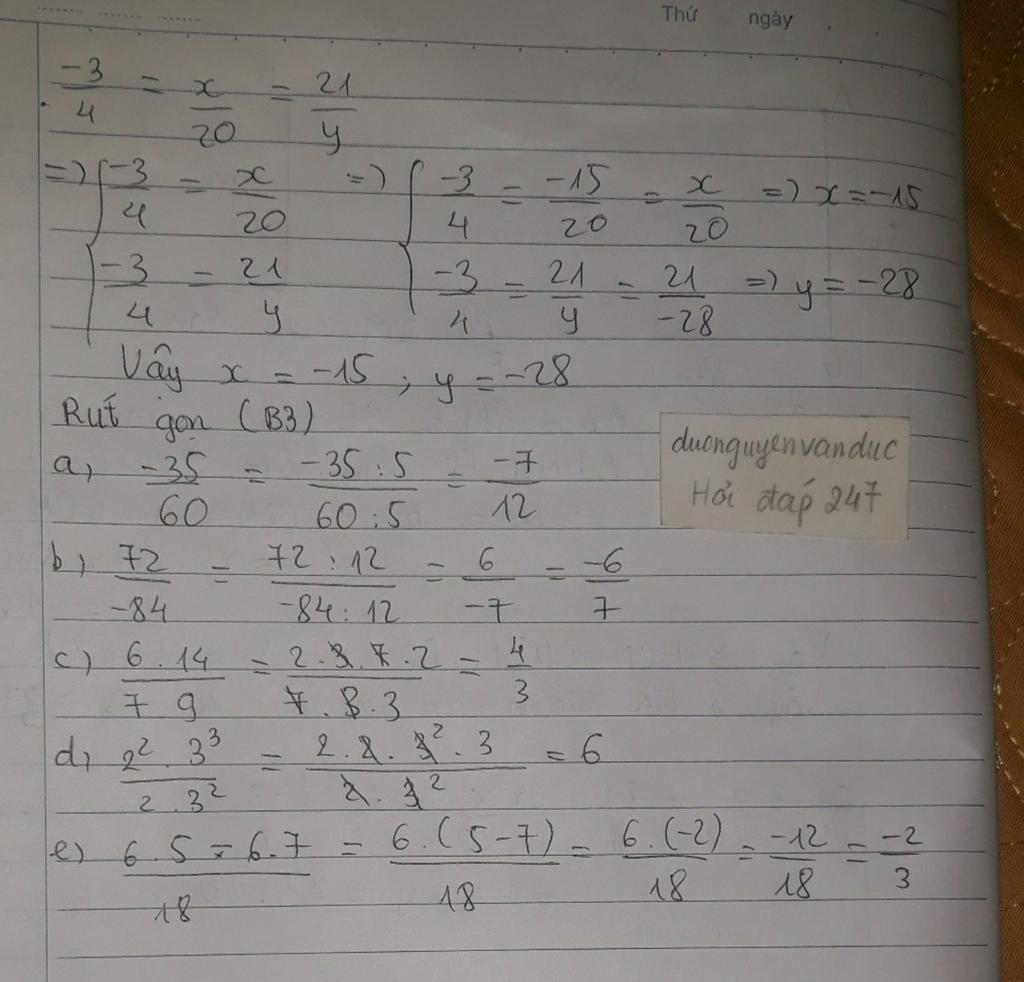 Thứ ngày
-3/4 = x/20 = 21/y
=> { -3/4 = x/20 => { -3/4 = -15/20 = x/20 => x = -15
-3/4 = 21/y -3/4 = 21/y = 21/-28 => y = -28
Vậy x = -15 ; y = -28
Rút gọn (B3)
a, -35/60 = -35:5/60:5 = -7/12
duonguyenvanduc
Hỏi đáp 247
b, 72/-84 = 72:12/-84:12 = 6/-7 = -6/7
c) 6.14/7.9 = 2.3.7.2/7.3.3 = 4/3
d, 2².3³/2.3² = 2.2.3².3/2.3² = 6
e) 6.5-6.7/18 = 6.(5-7)/18 = 6.(-2)/18 = -12/18 = -2/3